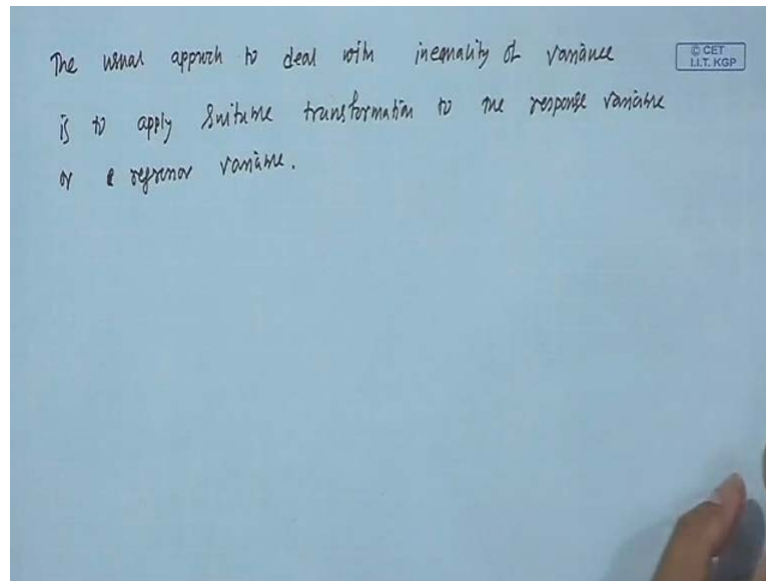 The usual approch to deal with inequality of variance
© CET
I.I.T. KGP
is to apply suitable transformation to the response variable
or regressor variable.